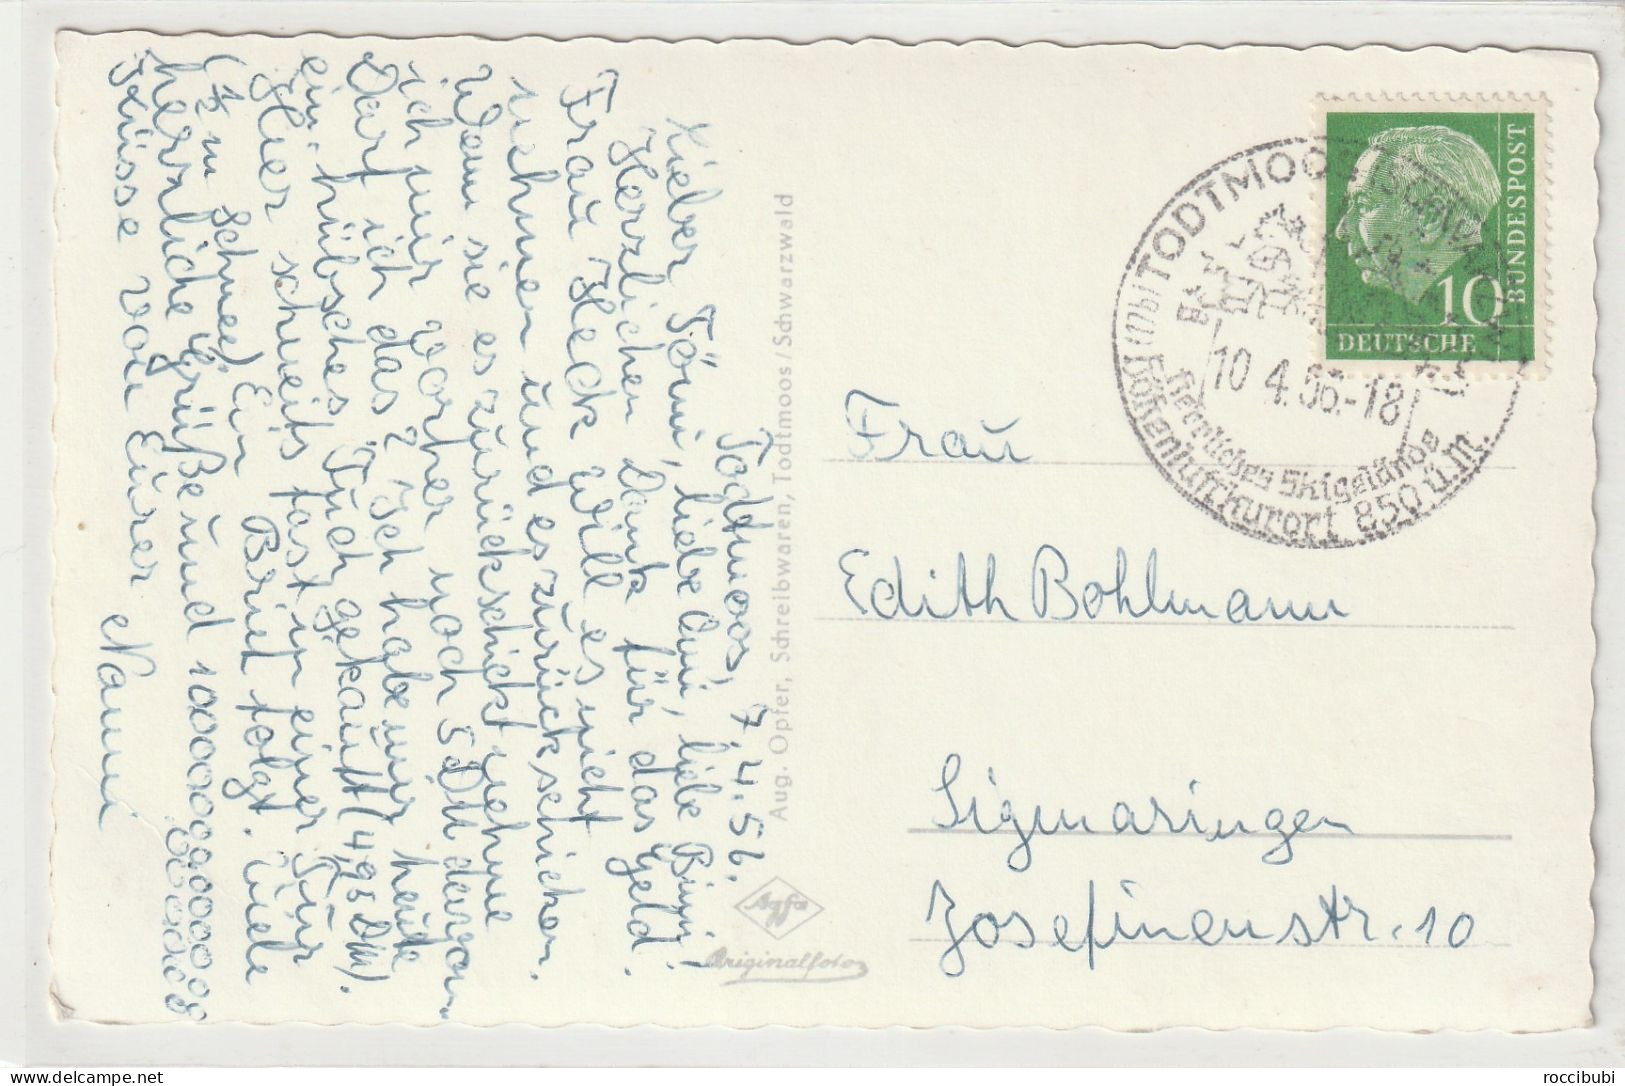 Todtmoos, 7.4.56.
Lieber Tönni, liebe Omi, liebe Bini!
Herzlichen Dank für das Geld.
Frau Heck will es nicht
nehmen und es zurückschicken.
Wenn sie es zurückschickt nehme
ich mir vorher noch 5 DM davon.
Darf ich das? Ich habe mir heute
ein hübsches Tuch gekauft (4,95 DM).
Hier schneits fast in einer Tour
(½ m Schnee) Ein Brief folgt. Viele
herzliche Grüße und 1000000000000
Küsse von Eurer Nanni
Aug. Opfer, Schreibwaren, Todtmoos/Schwarzwald
Agfa
Originalfoto
DEUTSCHE
BUNDESPOST
10
(17b) TODTMOOS
10.4.56.-18
Herrliches Skigelände
Höhenluftkurort 850 ü.M.
Frau
Edith Bohlmann
Sigmaringen
Josefinenstr. 10
roccibubi